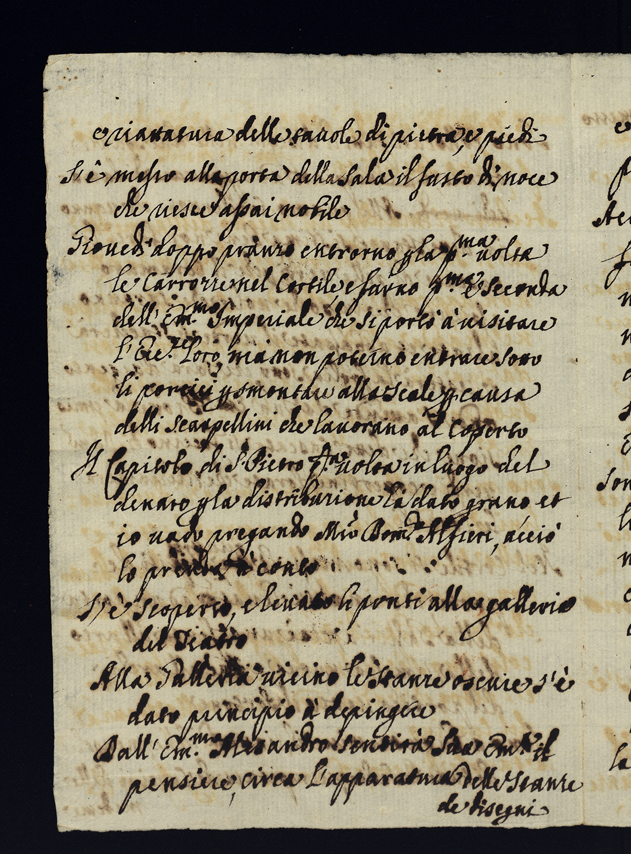 e riattatura delle tauole di pietra, e piedi
S'è messo alla porta della Sala il fusto di noce
che riesce assai nobile
Giouedi doppo pranzo entrorno p la p.ma uolta
le Carrozze nel Cortile, e furno p.ma e Seconda
dell' Em.mo Imperiale che si portò à uisitare
l'Ecc.ze Loro, mà non poterno entrare sotto
li portici p smontare alla scale p causa
delli scarpellini che lauorano al Coperto
Il Capitolo di S. Pietro uolta in luogo del
denaro p la distribuzione hà dato grano et
io uado pregando Mio Alfieri, acciò
lo prenda à conto
S'è scoperto, e leuato li ponti alla galleria
del Teatro
Alla Galletta uicino le stanze oscure s'è
dato principio à depingere
Dall' Em.mo Alesandro sentirà Sua Em.za il
pensiere, circa l'apparatura delle stanze
de disegni